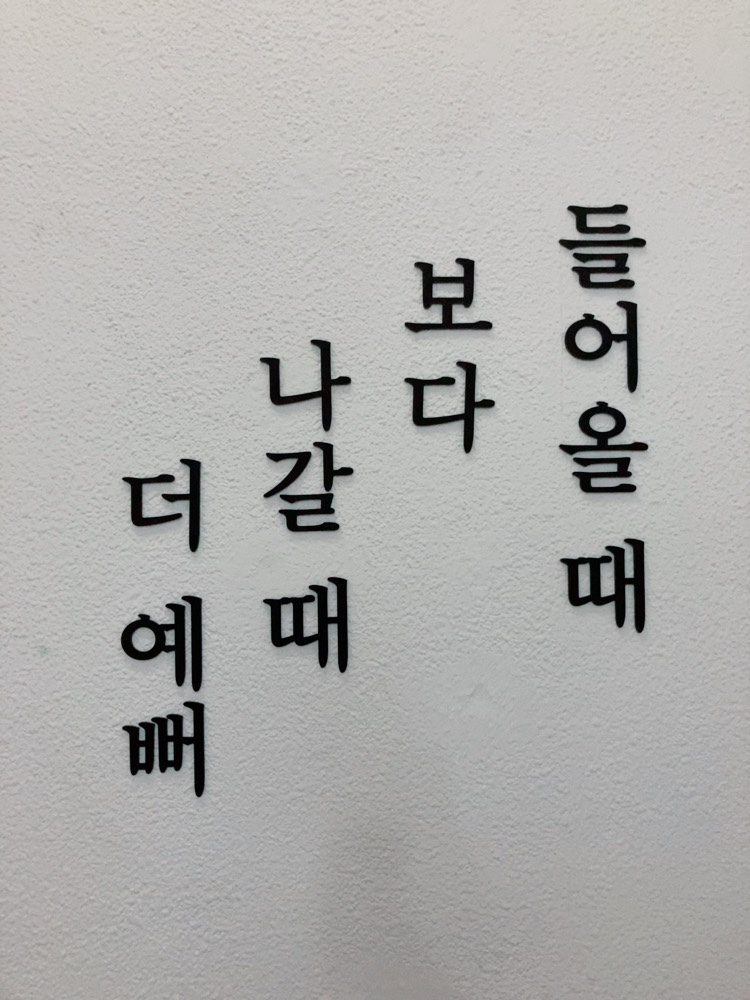 들어올 때
보다
나갈 때
더 예뻐